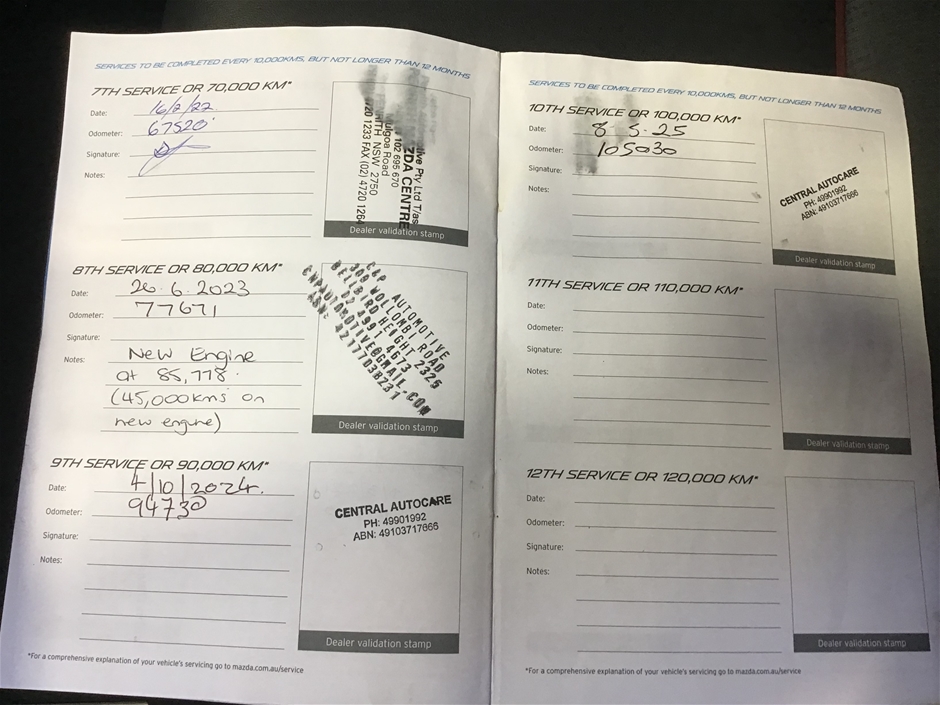 SERVICES TO BE COMPLETED EVERY 10,000KMS, BUT NOT LONGER THAN 12 MONTHS
7TH SERVICE OR 70,000 KM*
Date: 16/2/22
Odometer: 67520
Signature:
Notes:
ive Pty Ltd T/as
ZDA CENTRE
102 695 670
ulgoa Road
TH NSW 2750
720 1233 FAX (02) 4720 1264
Dealer validation stamp
8TH SERVICE OR 80,000 KM*
Date: 26.6.2023
Odometer: 77671
Signature:
Notes: New Engine
at 85,778.
(45,000kms on
new engine)
C&P AUTOMOTIVE
309 WOLLOMBI ROAD
BELLBIRD HEIGHT 2325
02 4991 4673
CNPAUTOMOTIVE@GMAIL.COM
ABN: 42177038231
Dealer validation stamp
9TH SERVICE OR 90,000 KM*
Date: 4/10/2024.
Odometer: 94730
Signature:
Notes:
CENTRAL AUTOCARE
PH: 49901992
ABN: 49103717666
Dealer validation stamp
*For a comprehensive explanation of your vehicle's servicing go to mazda.com.au/service
SERVICES TO BE COMPLETED EVERY 10,000KMS, BUT NOT LONGER THAN 12 MONTHS
10TH SERVICE OR 100,000 KM*
Date: 8.5.25
Odometer: 105030
Signature:
Notes:
CENTRAL AUTOCARE
PH: 49901992
ABN: 49103717666
Dealer validation stamp
11TH SERVICE OR 110,000 KM*
Date:
Odometer:
Signature:
Notes:
Dealer validation stamp
12TH SERVICE OR 120,000 KM*
Date:
Odometer:
Signature:
Notes:
Dealer validation stamp
*For a comprehensive explanation of your vehicle's servicing go to mazda.com.au/service